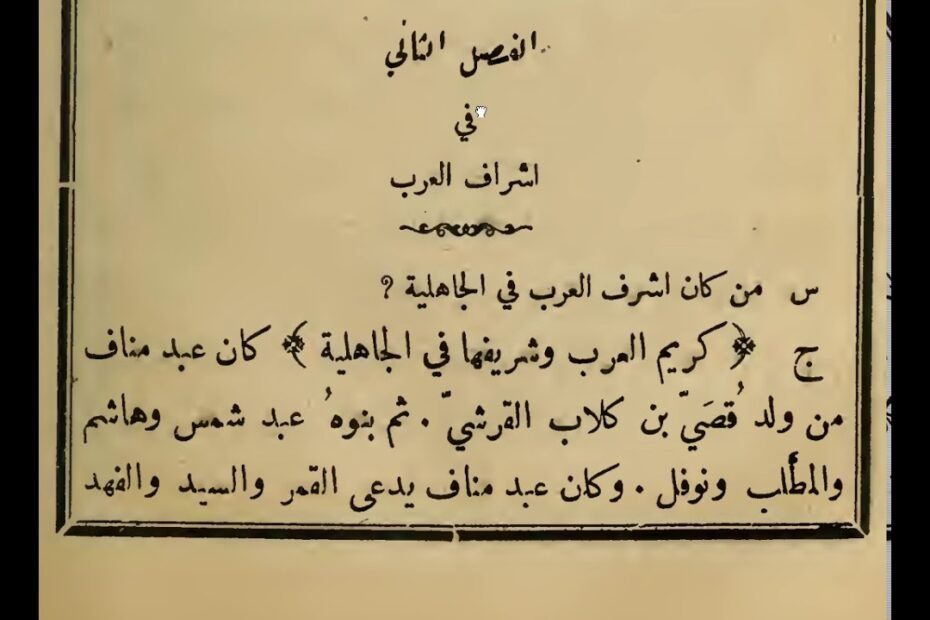 الفصل الثاني
في
اشراف العرب
س من كان اشرف العرب في الجاهلية ؟
ج ﴿ كريم العرب وشريفها في الجاهلية ﴾ كان عبد مناف
من ولد قُصَيّ بن كلاب القرشيّ . ثم بنوهُ عبد شمس وهاشم
والمطَّلب ونوفل . وكان عبد مناف يدعى القمر والسيد والفهد